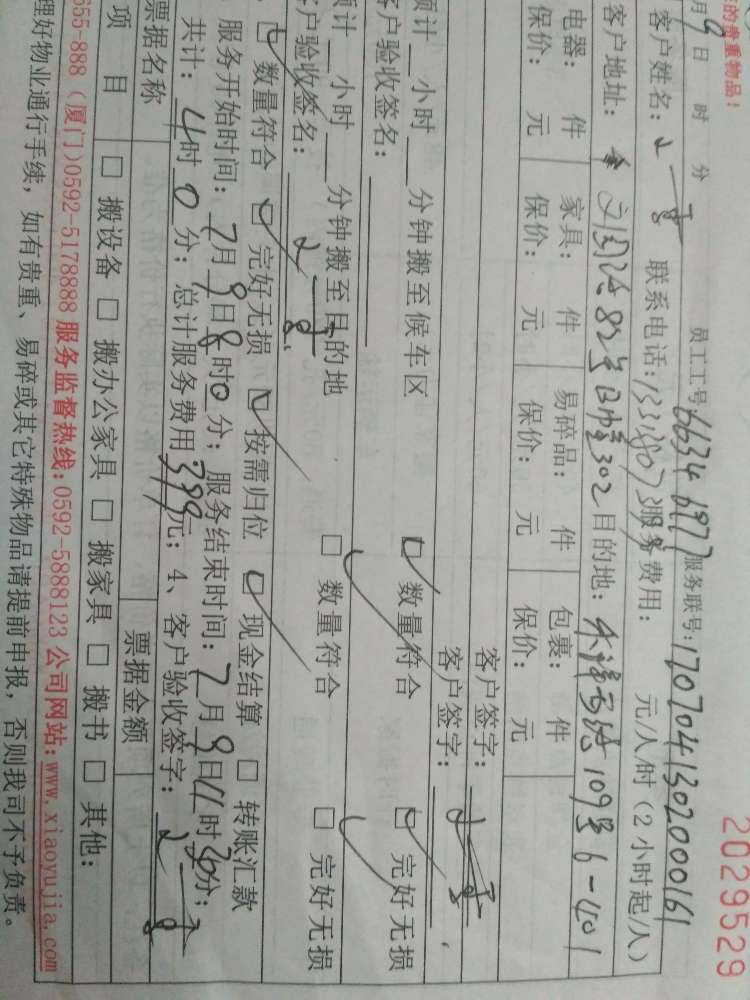 2029529
的贵重物品!
月9日 时 分 员工工号66346977服务联号:1707041302000161
客户姓名: 联系电话: 服务费用: 元/人/时(2小时起/人)
客户地址: 82号 302目的地: 109号6-401
电器: 件 家具: 件 易碎品: 件 包裹: 件
保价: 元 保价: 元 保价: 元 保价: 元
客户签字:
预计__小时__分钟搬至候车区 □ 数量符合 □ 完好无损
客户验收签名: 客户签字:
预计__小时__分钟搬至目的地 □ 数量符合 □ 完好无损
客户验收签名:
□ 数量符合 □ 完好无损 □ 按需归位 □ 现金结算 □ 转账汇款
服务开始时间:7月9日8时0分;服务结束时间:7月9日11时 分;
共计:4时0分;总计服务费用399元;4、客户验收签字:
票据名称 票据金额
项 目 □ 搬设备 □ 搬办公家具 □ 搬家具 □ 搬书 □ 其他:
655-888(厦门)0592-5178888 服务监督热线:0592-5888123 公司网站:www.xiaoyujia.com
理好物业通行手续,如有贵重、易碎或其它特殊物品请提前申报,否则我司不予负责。